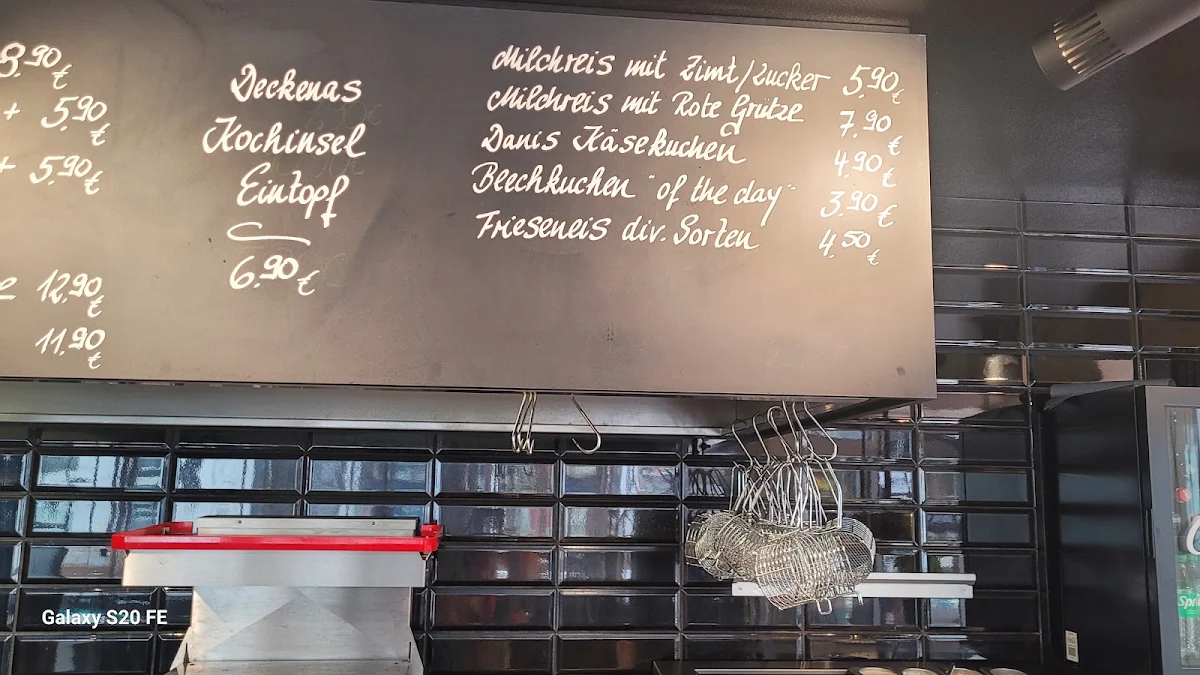 8.90 €
+ 5.90 €
+ 5.90 €
12.90 €
11.90 €
Deckenas
Kochinsel
Eintopf
6.90 €
Milchreis mit Zimt/Zucker 5.90 €
Milchreis mit Rote Grütze 7.90 €
Danis Käsekuchen 4.90 €
Beechkuchen "of the day" 3.90 €
Frieseneis div. Sorten 4.50 €
Galaxy S20 FE